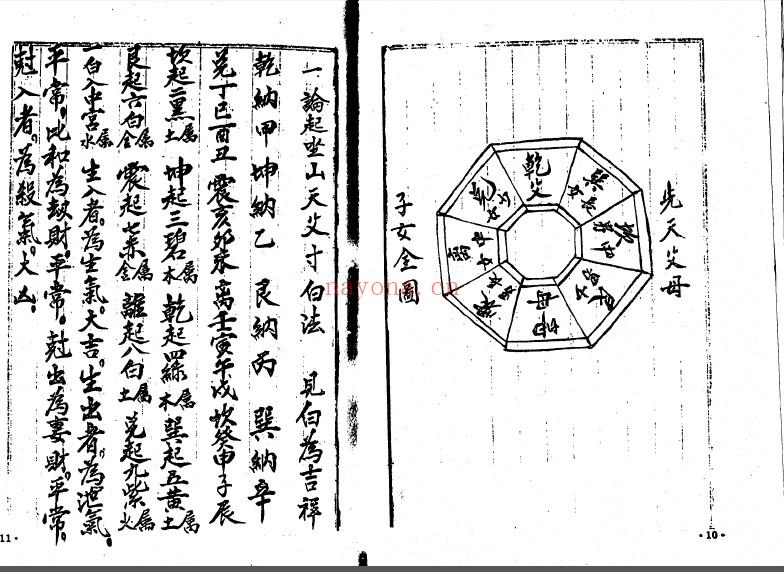 先天父母
乾父
巽長女
坎中男
艮少男
坤母
震長男
離中女
兌少女
子女全圖
·10·
一論起坐山天父寸白法 見白為吉祥
乾納甲坤納乙 艮納丙 巽納辛
兌丁巳酉丑 震亥卯未 离壬寅午戌 坎癸申子辰
坎起二黑屬土 坤起三碧屬木 乾起四綠屬木 巽起五黃屬土
艮起六白屬金 震起七赤屬金 離起八白屬土 兌起九紫屬火
一白入中宮屬水 生入者。為生氣。大吉。生出者。為泄氣。
平常。比和為劫財。平常。尅出為妻財。平常。
尅入者。為殺氣。大凶。
11·
nayong.cn